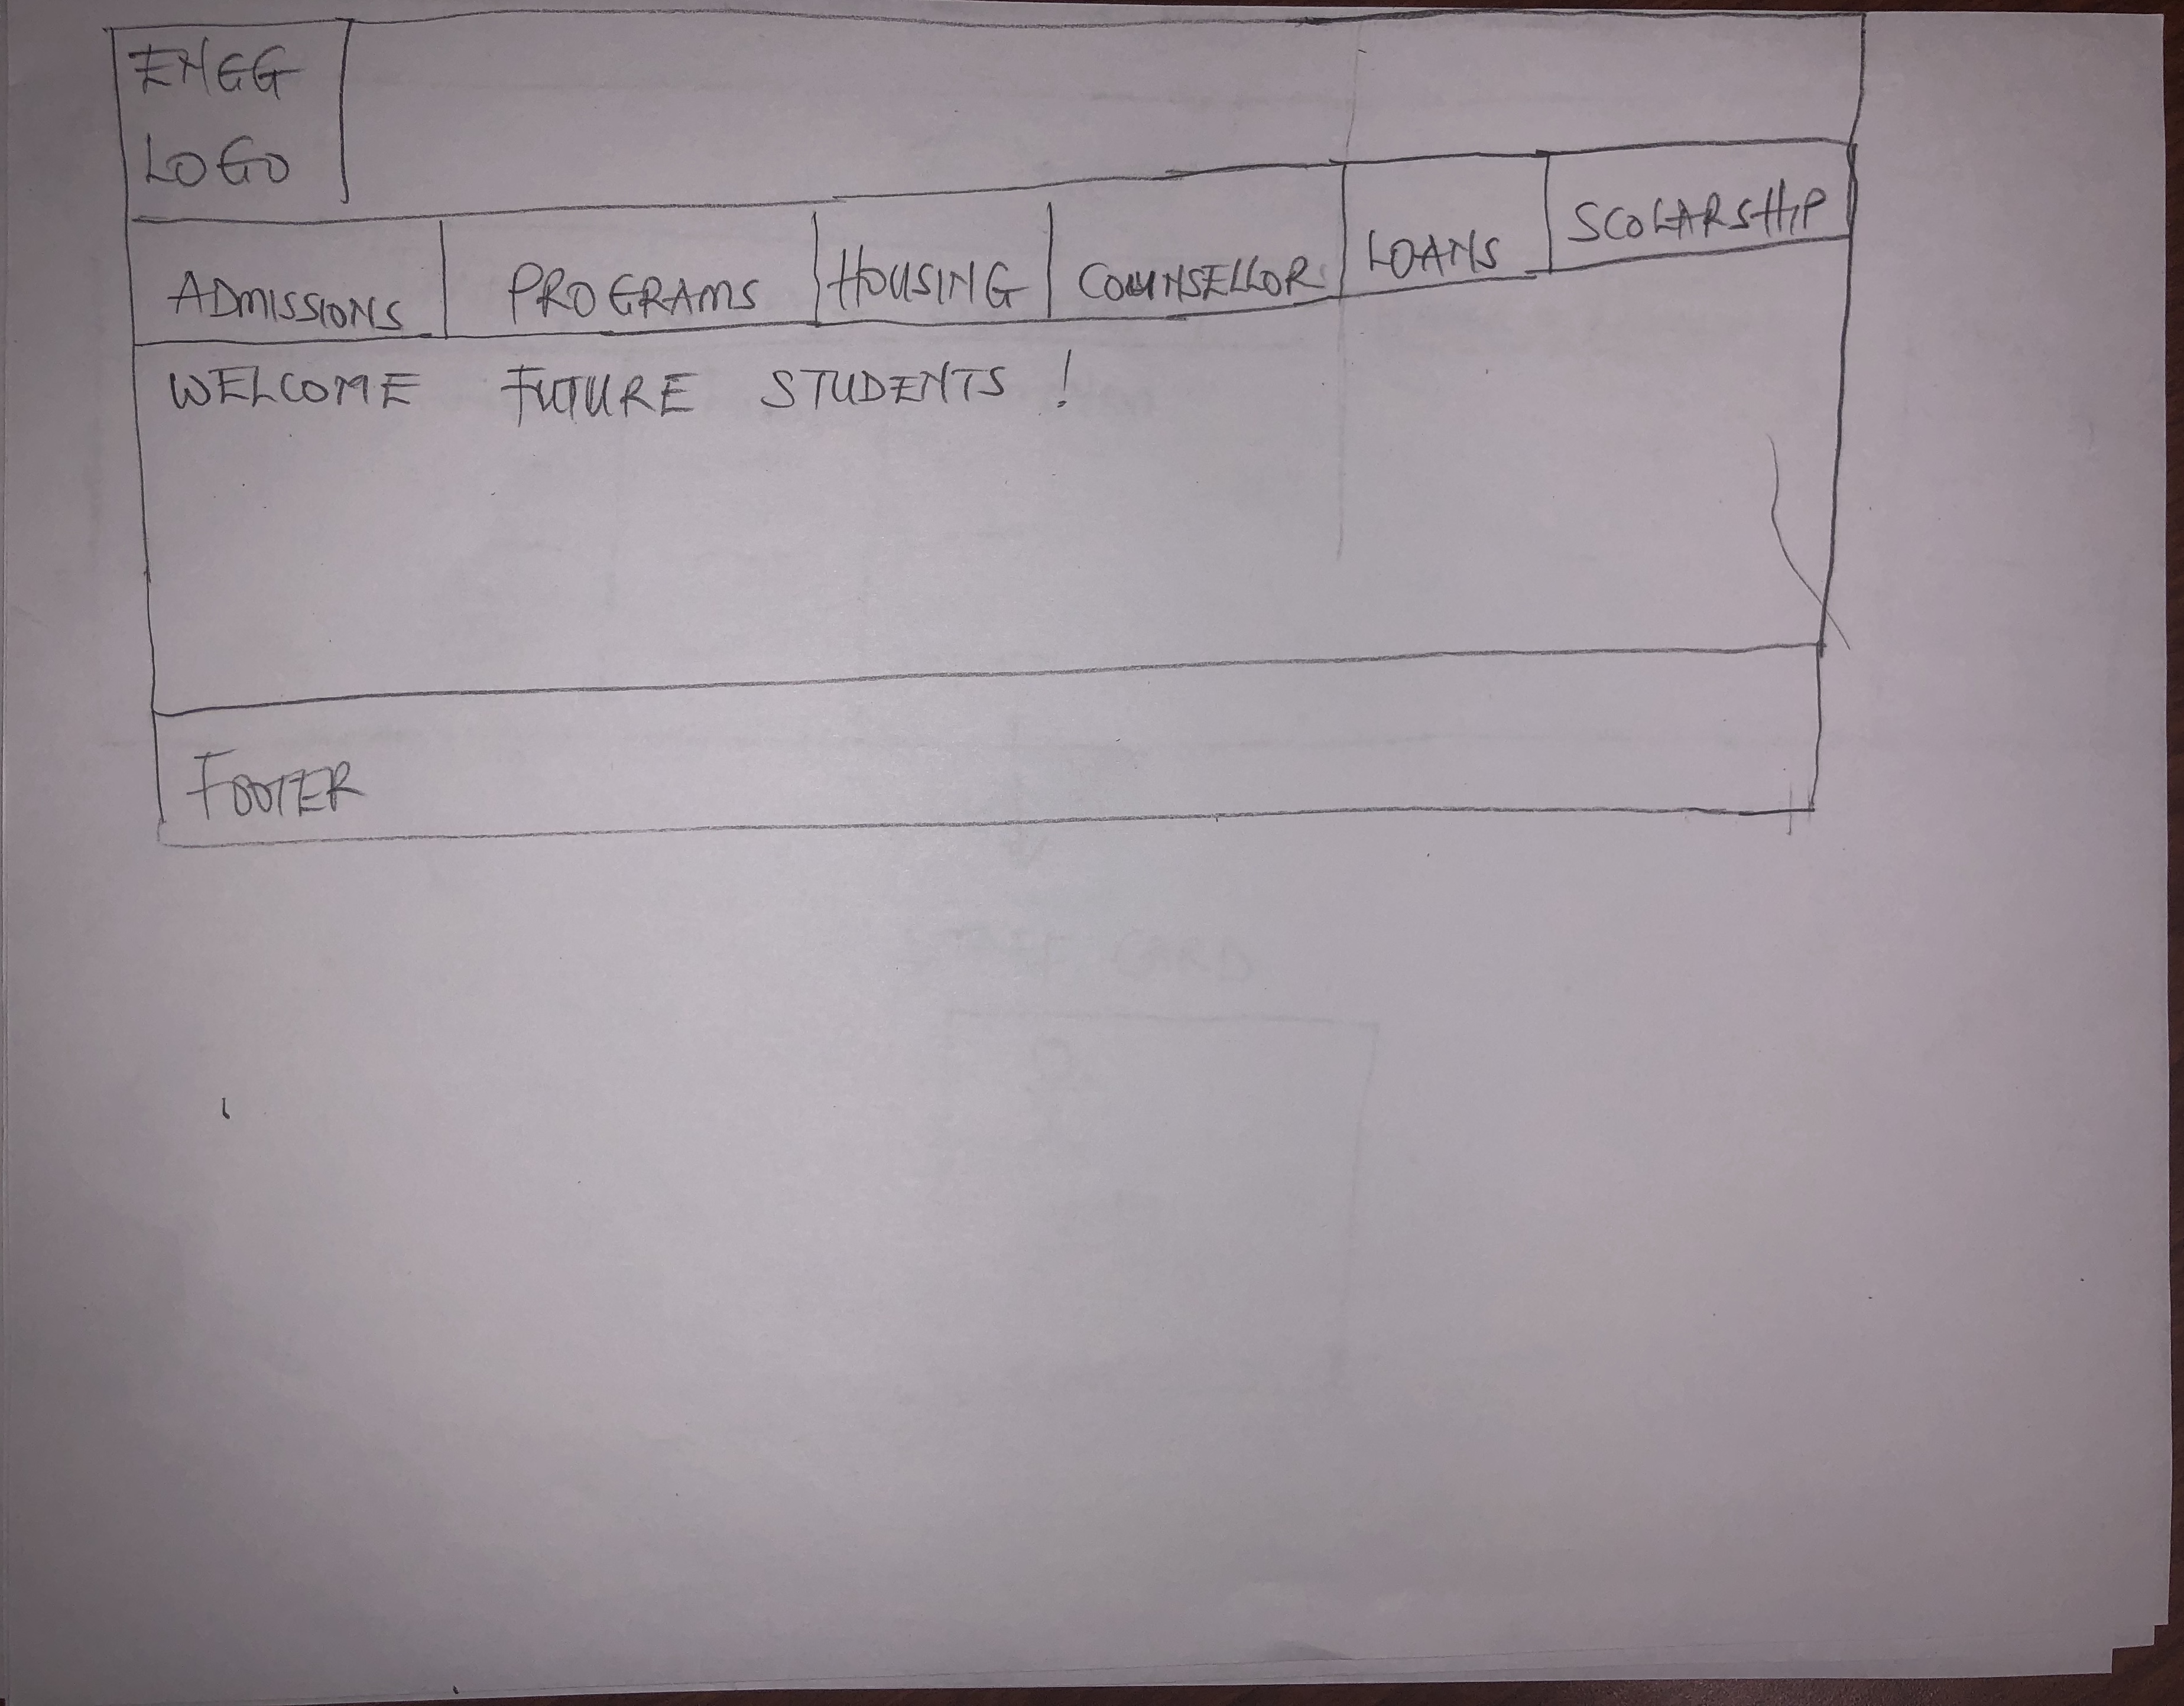 ENGG
LOGO
ADMISSIONS PROGRAMS HOUSING COUNSELLOR LOANS SCOLARSHIP
WELCOME FUTURE STUDENTS !
FOOTER